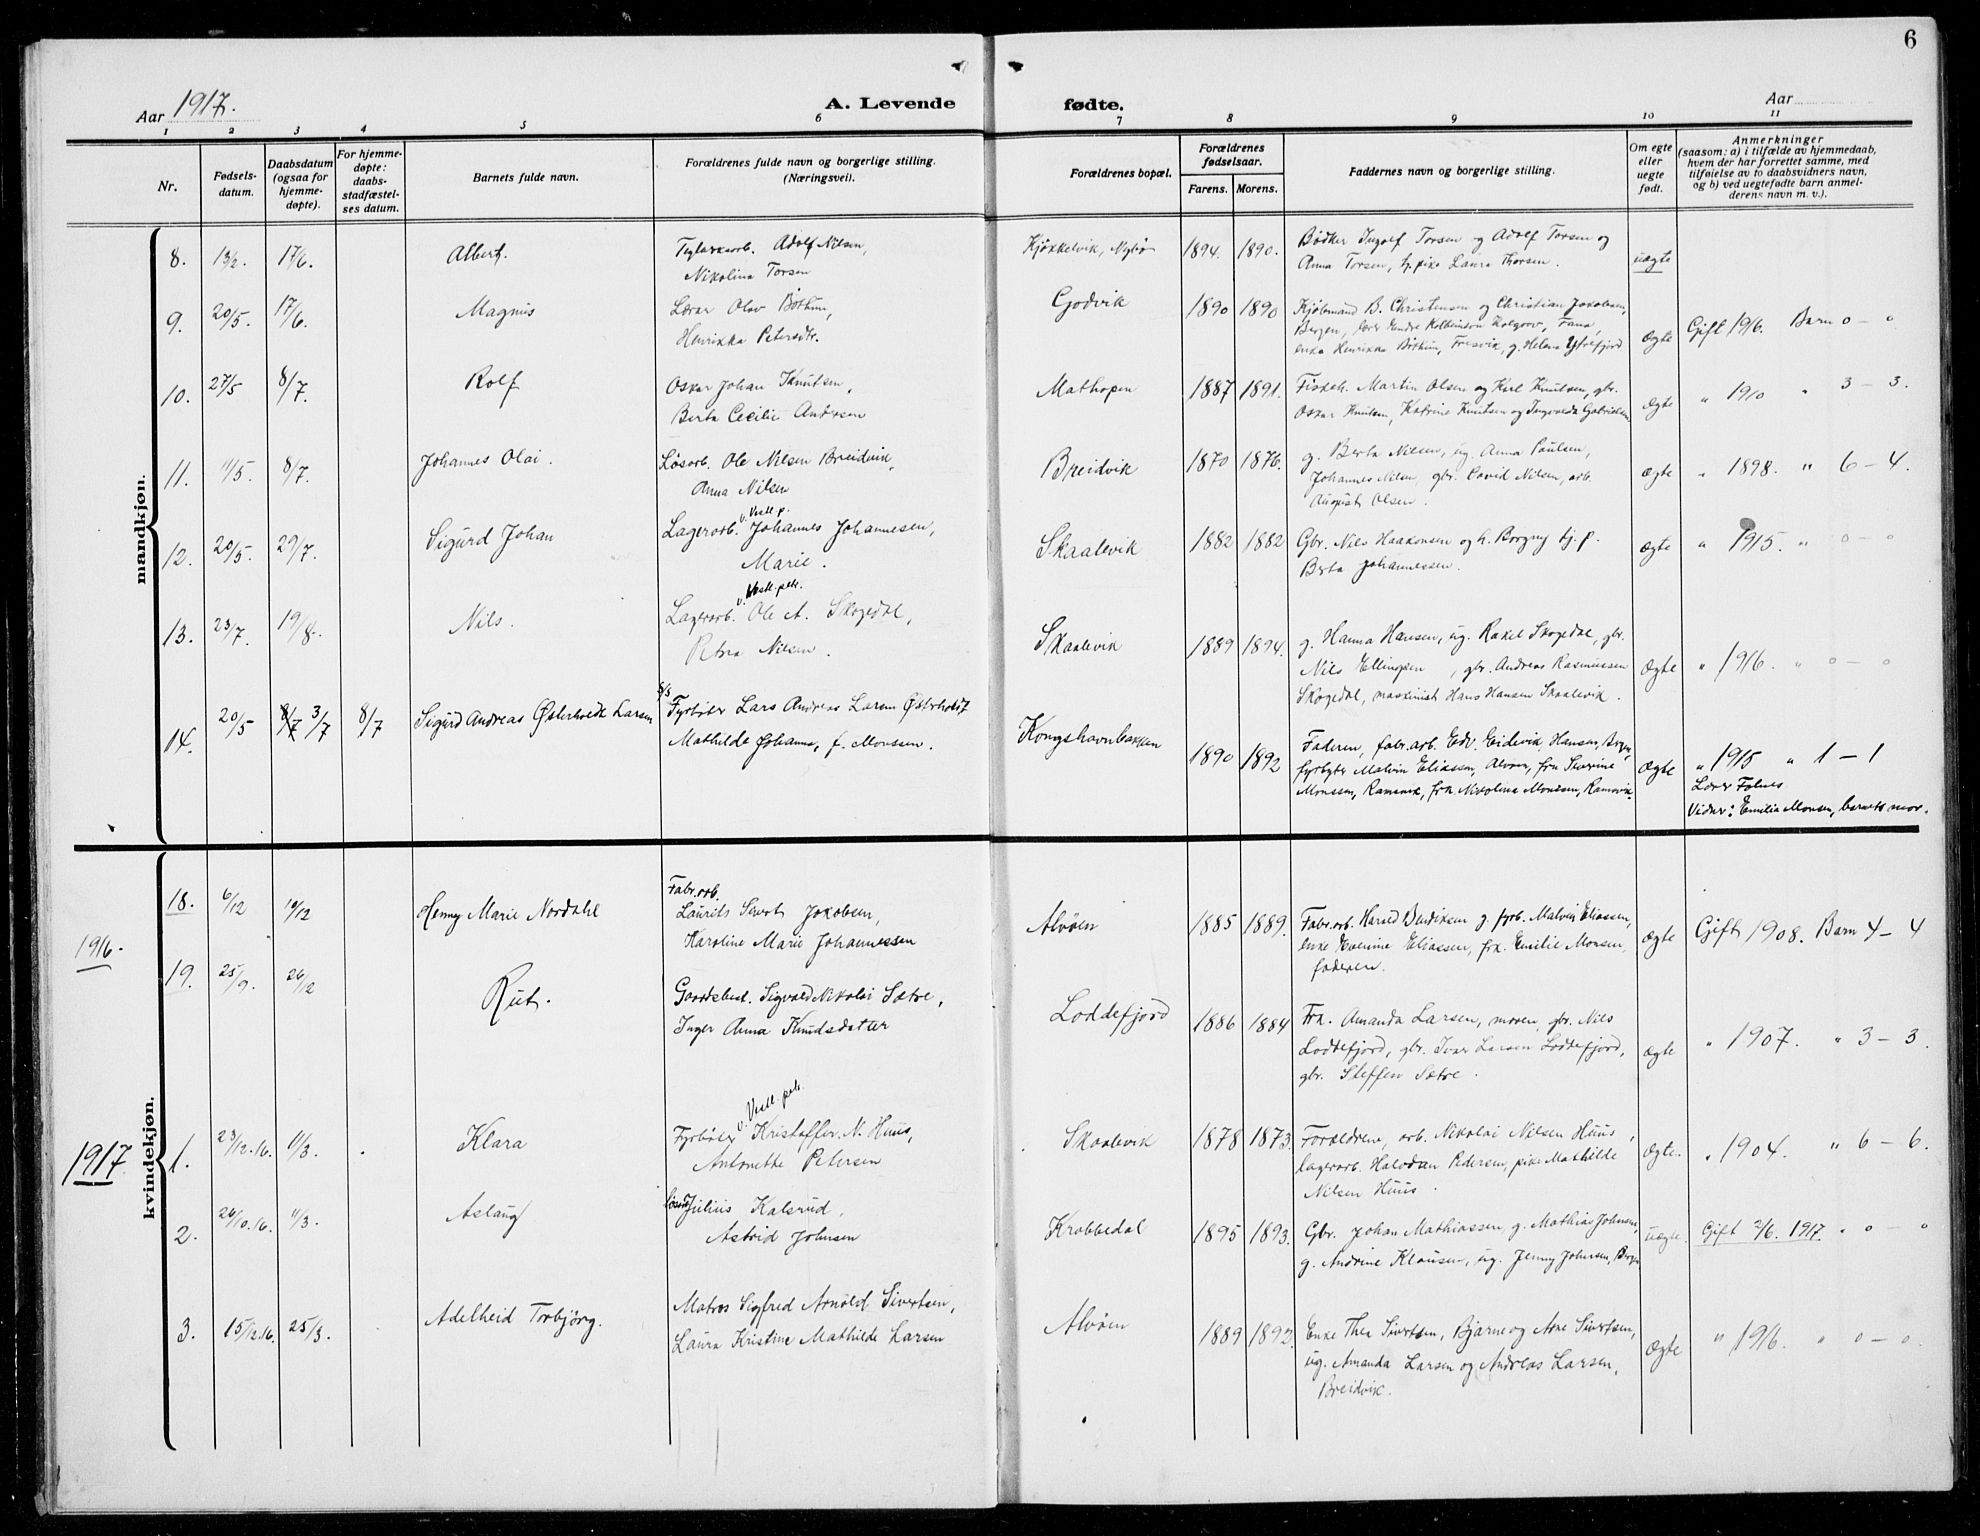 6
Aar 1917.
A. Levende fødte.
Aar
1 2 3 4 5 6 7 8 9 10 11
Nr.
Fødsels-
datum.
Daabsdatum
(ogsaa for
hjemme-
døpte).
For hjemme-
døpte:
daabs-
stadfæstel-
ses datum.
Barnets fulde navn.
Forældrenes fulde navn og borgerlige stilling.
(Næringsvei).
Forældrenes bopæl.
Forældrenes
fødselsaar.
Farens. Morens.
Faddernes navn og borgerlige stilling.
Om egte
eller
uegte
født.
Anmerkninger
(saasom: a) i tilfælde av hjemmedaab,
hvem der har forrettet samme, med
tilføielse av to daabsvidners navn,
og b) ved uegtefødte barn anmel-
derens navn m. v.).
mandkjøn.
8. 13/2. 17/6. Albert. Adolf Nilsen,
Nikolina Torsen
Kjøkkelvik, 1894. 1890.
Bødker Ingolf Torsen og Adolf Torsen og
Anna Torsen, tj. pike Laura Thorsen.
uægte
9. 20/5. 17/6. Magnus
Lærer Olav Bøthun,
Henrikka Petersdtr.
Godvik 1890 1890
Kjøbmand B. Christensen og Christian Jakobsen,
Bergen, lærer Endre Fana,
enke Henrikka Bøthun, Fresvik, g. Helena Ytrefjord
ægte Gift 1916. Barn 0 – 0
10. 27/5 8/7. Rolf
Oskar Johan Knutsen,
Berta Cecilie Andersen
Mathopen 1887 1891.
Fiskeh. Martin Olsen og Karl Knutsen, gbr.
Oskar Knutsen, Katrine Knutsen og Ingvalda Gabrielsen
ægte " 1910 " 3 – 3.
11. 11/5. 8/7. Johannes Olai.
Løsarb. Ole Nilsen Breidvik,
Anna Nilsen
Breidvik 1870 1876.
g. Berta Nilsen, ug. Anna Paulsen,
Johannes Nilsen, gbr. David Nilsen, arb.
August Olsen.
ægte " 1898. " 6 – 4.
12. 20/5. 29/7. Sigurd Johan
v. Vestl. p.
Lagerarb. Johannes Johannesen,
Marie.
Skaalevik 1882 1882
Gbr. Nils Haakonsen og h. Borgny tj. p.
Berta Johannessen.
ægte " 1915. " 0 – 0
13. 23/7. 19/8. Nils.
v. Vestl. petr.
Lagerarb. Ole A. Skogedal,
Petra Nilsen.
Skaalevik 1889 1894.
g. Hanna Hansen, ug. Rakel Skogedal, gbr.
Nils Ellingsen, gbr. Andreas Rasmussen
Skogedal, maskinist Hans Hansen Skaalevik.
ægte " 1916. " 0 – 0
14. 20/5 8/7 3/7 8/7 Sigurd Andreas Østerholdt Larsen
S/S
Fyrbøter Lars Andreas Larsen Østerholdt
Mathilde Johanna, f. Monssen.
Kongshavnbakken 1890 1892
Faderen, fabr. arb. Edv. Eidevik Hansen, Bergen,
fyrbøter Malvin Eliassen, Alvøen, frk Severine
Monssen, Ramsvik, frk Nikolina Monssen, Ramsvik.
ægte " 1915 " 1 – 1
Lærer Folnes
Vidner: Emilia Monsen, barnets mor.
kvindekjøn.
1916.
18. 6/12 10/12 Henny Marie Nordahl
Fabr. arb.
Laurits Severt Jakobsen,
Karoline Marie Johannessen
Alvøen 1885 1889.
Fabr. arb. Harald Bendiksen g. fyrb. Malvin Eliassen,
enke Evenine Eliassen, frk. Emilie Monsen,
faderen.
ægte Gift 1908. Barn 4 – 4
19. 25/9. 26/12 Rut.
Gaardsbest. Sigvald Nikolai Sætre,
Inger Anna Knudsdatter
Loddefjord 1886 1884
Frk. Amanda Larsen, moren, gbr. Nils
Loddefjord, gbr. Ivar Larsen Loddefjord,
gbr. Steffen Sætre.
ægte " 1907. " 3 – 3.
1917.
1. 23/12.16. 11/3. Klara
v. Vestl. petr.
Fyrbøter Kristoffer N. Huus,
Antonette Petersen
Skaalevik 1878 1873.
Forældrene, arb. Nikolai Nilsen Huus,
lagerarb. Halvdan Pedersen, pike Mathilde
Nilsen Huus.
ægte. " 1904. " 6 – 6.
2. 26/10.16. 11/3. Aslaug
Julius Kalsrud,
Astrid Johnsen
Krabbedal 1895 1893.
Gbr. Johan Mathiassen, g. Mathias Johnsen,
g. Andrine Klausen, ug. Jenny Johnsen, Bergen
uægte. Gift 2/6. 1917. " 0 – 0
3. 15/12.16. 25/3. Adelheid Torbjørg.
Matros Sigfred Arnold Sivertsen,
Laura Kristine Mathilde Larsen
Alvøen 1889 1892.
Enke Thea Sivertsen, Bjarne og Arne Sivertsen,
ug. Amanda Larsen og Andreas Larsen,
Breidvik.
ægte " 1916. " 0 – 0.